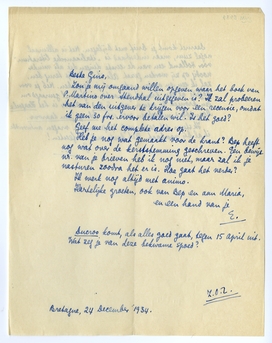 Beste Guus,
Zou je mij omgaand willen opgeven waar het boek van
P. Martino over Stendhal uitgegeven is? Ik zal probeeren
het van den uitgever te krijgen voor een recensie, omdat
ik geen 50 frs. ervoor betalen wil. Is dat goed?
Geef me het complete adres op.
Heb je nog wat gemaakt voor de krant? Bep heeft
nog wat over de kerststemming geschreven. Een
nr. van je brieven heb ik nog niet, maar zal ik je
nasturen zoodra het er is. Hoe gaat het verder?
Ik werk nog altijd met animo.
Hartelijke groeten, ook van Bep en aan Maria,
en een hand van je
E.
Ducroo komt, als alles goed gaat, tegen 15 april uit.
Wat zeg je van deze bekwame spoed?
Z.O.Z.
Bretagne, 24 December 1934.